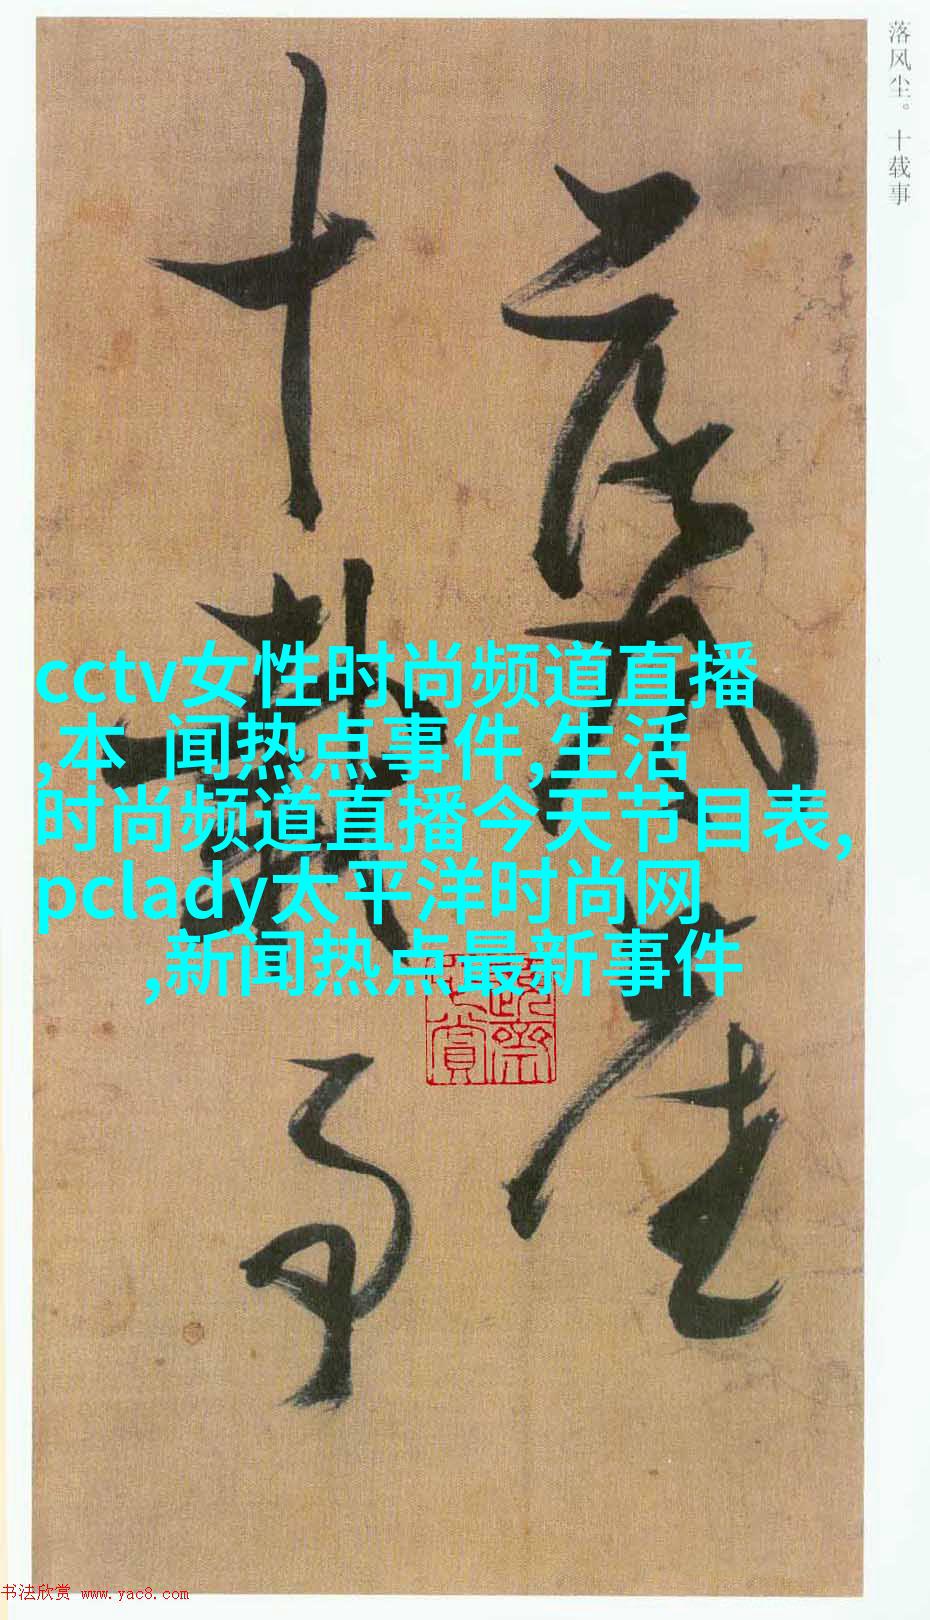 落风尘。十载事
落风尘
十载事
cctv女性时尚频道直播
,本 闻热点事件,生活
时尚频道直播今天节目表,
pclady太平洋时尚网
,新闻热点最新事件
书法欣赏 www.yac8.com